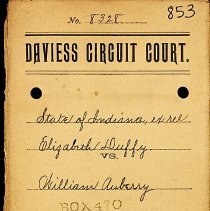 853
No. 8328
DAVIESS CIRCUIT COURT.
State of Indiana, ex rel
Elizabeth Duffy
VS.
William Auberry
BOX 470